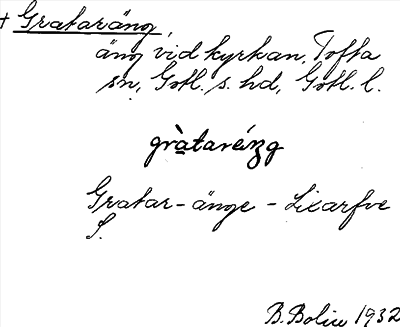 + Grataräng,
äng vid kyrkan, Tofta
sn, Gotl. s. hd, Gotl. l.
gràtaréng
Gratar-änge - Lixarfve
S.
B. Bolin 1932